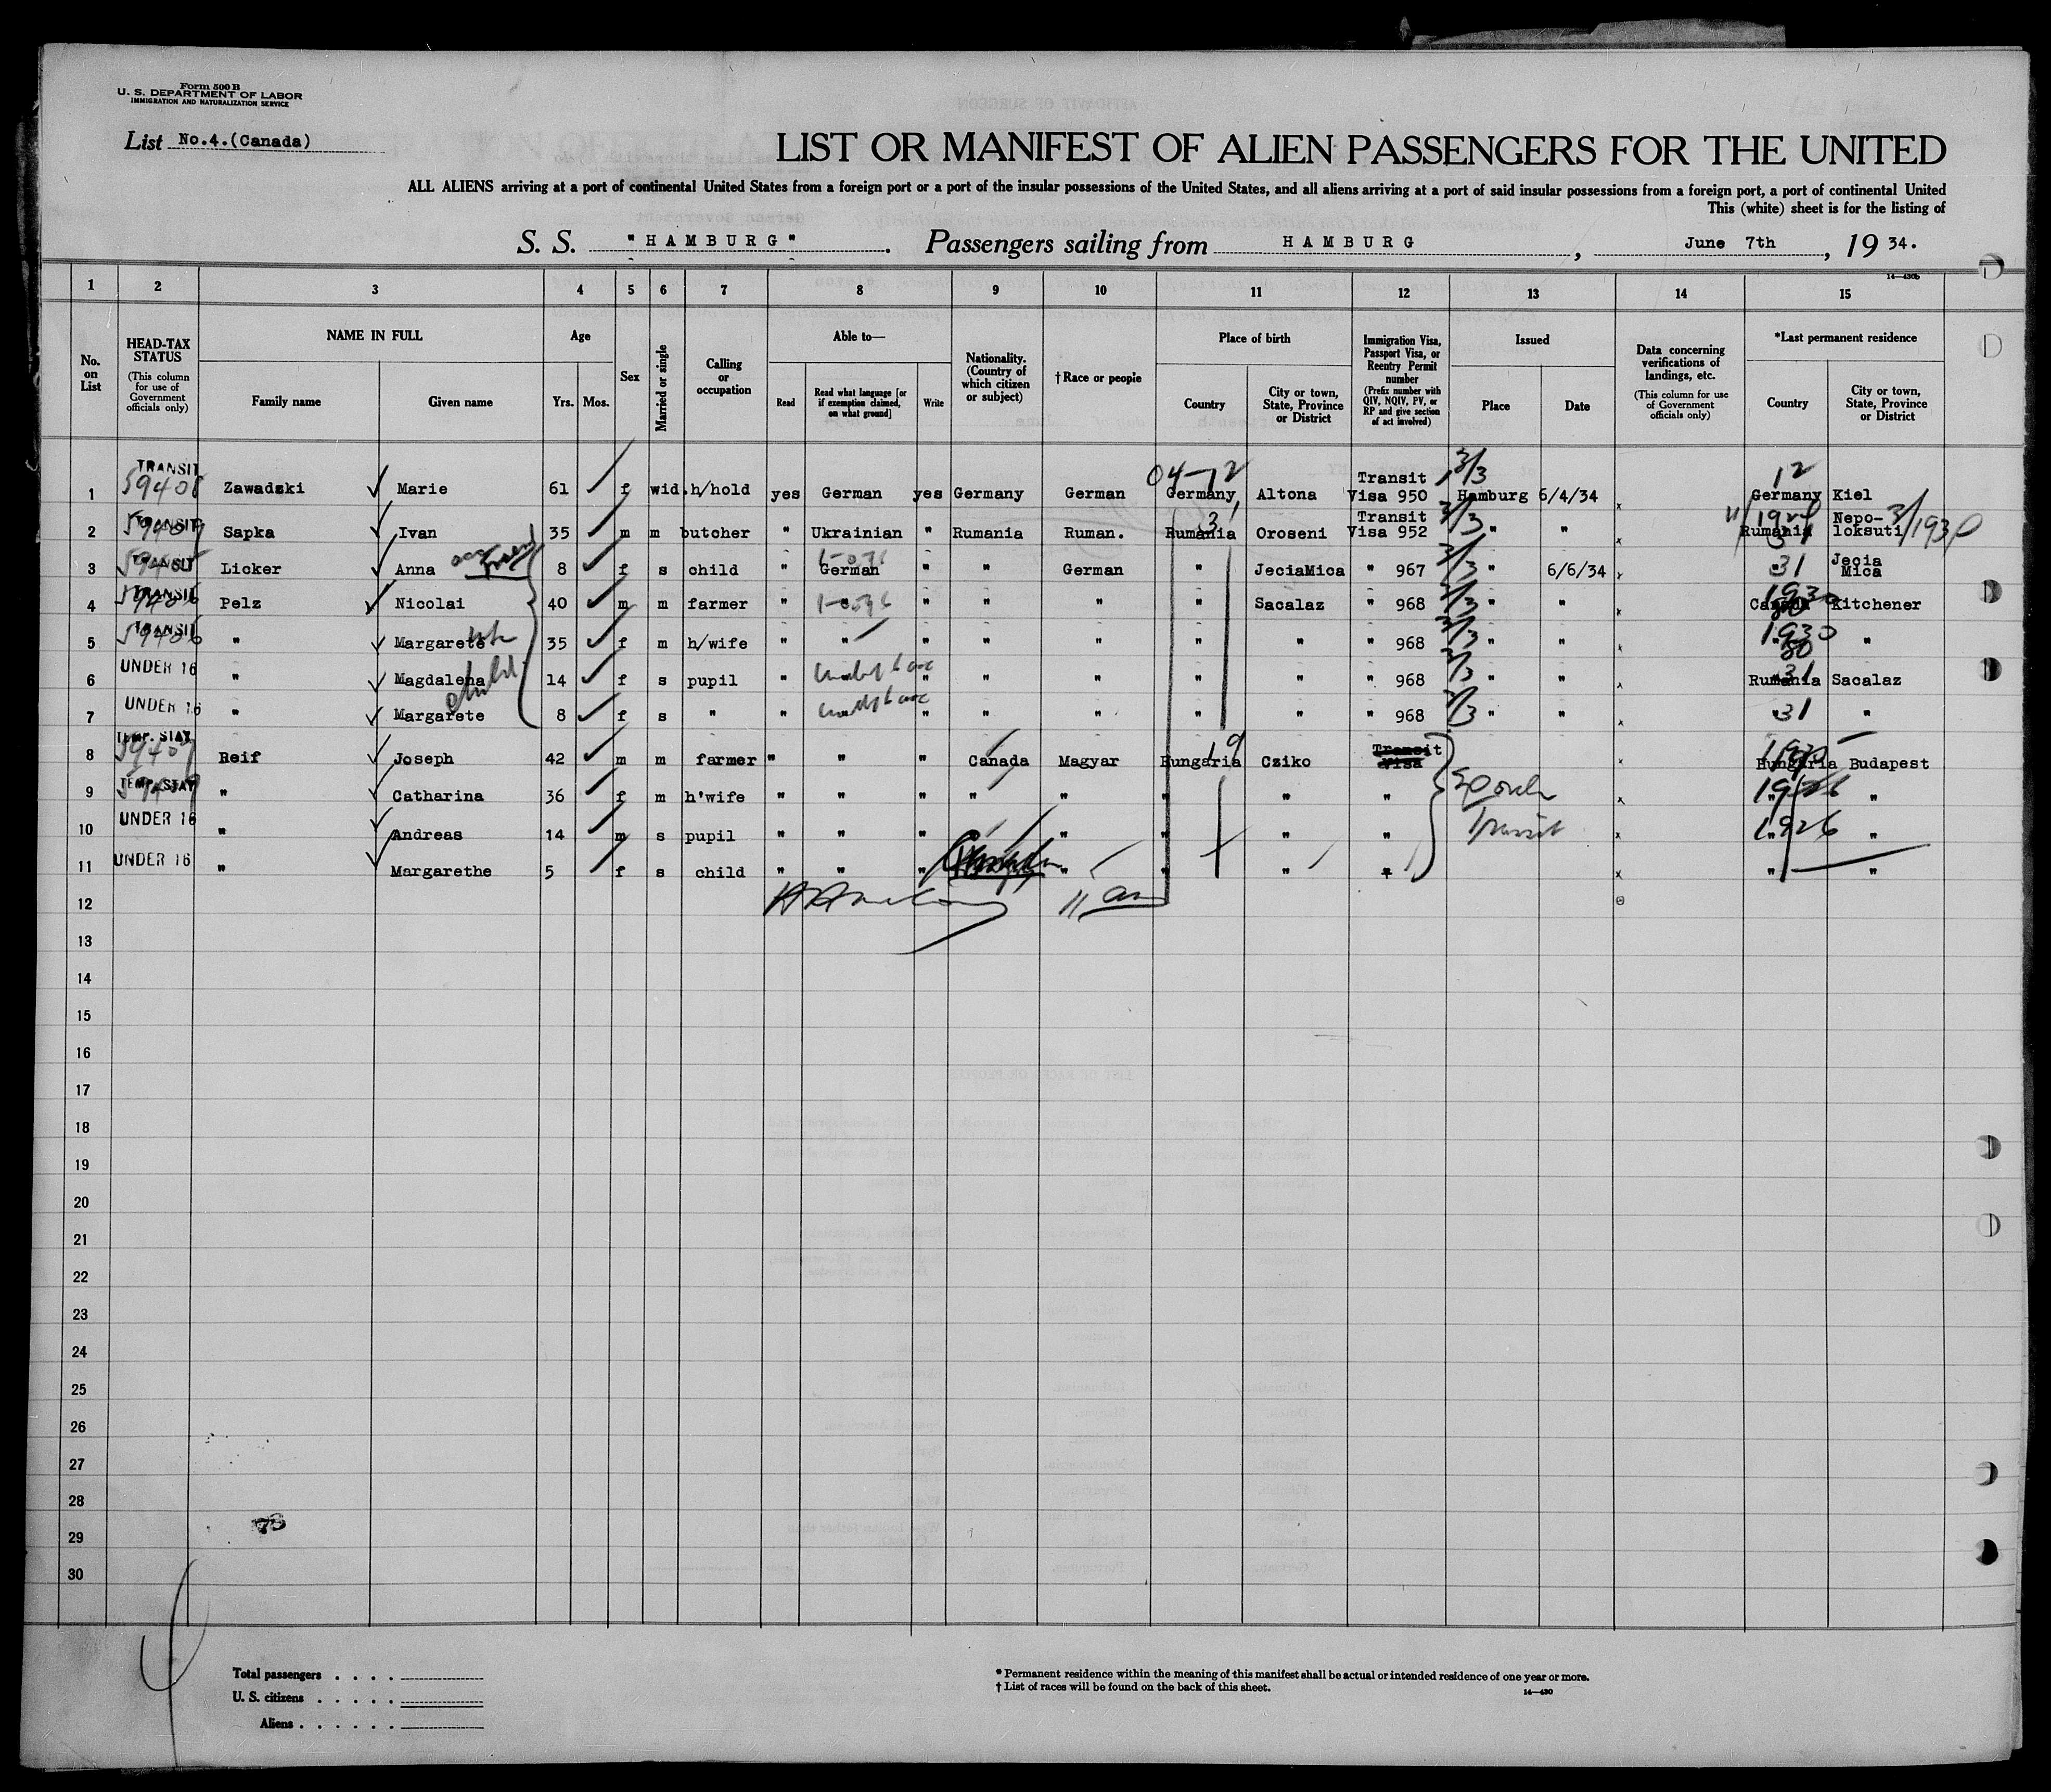 Form 500 B
U. S. DEPARTMENT OF LABOR
IMMIGRATION AND NATURALIZATION SERVICE
List No.4.(Canada)
LIST OR MANIFEST OF ALIEN PASSENGERS FOR THE UNITED
ALL ALIENS arriving at a port of continental United States from a foreign port or a port of the insular possessions of the United States, and all aliens arriving at a port of said insular possessions from a foreign port, a port of continental United
This (white) sheet is for the listing of
S. S. "HAMBURG". Passengers sailing from HAMBURG, June 7th, 19 34.
14—430b
1 2 3 4 5 6 7 8 9 10 11 12 13 14 15
No. on List
HEAD-TAX STATUS (This column for use of Government officials only)
NAME IN FULL
Family name
Given name
Age
Yrs. Mos.
Sex
Married or single
Calling or occupation
Able to—
Read
Read what language [or if exemption claimed, on what ground]
Write
Nationality. (Country of which citizen or subject)
†Race or people
Place of birth
Country
City or town, State, Province or District
Immigration Visa, Passport Visa, or Reentry Permit number (Prefix number with QIV, NQIV, PV, or RP and give section of act involved)
Issued
Place
Date
Data concerning verifications of landings, etc. (This column for use of Government officials only)
*Last permanent residence
Country
City or town, State, Province or District
04-12 3/3 12
1 TRANSIT 59408 Zawadzki Marie 61 f wid. h/hold yes German yes Germany German Germany Altona Transit Visa 950 Hamburg 6/4/34 x Germany Kiel
2 TRANSIT 59409 Sapka Ivan 35 m m butcher " Ukrainian " Rumania Ruman. Rumania 31 Oroseni Transit Visa 952 3/3 " " x Rumania 31 Nepoloksuti 3/1930
3 TRANSIT Licker Anna 8 f s child " German " " German " JeciaMica " 967 3/3 " 6/6/34 x " 31 Jecia Mica
4 TRANSIT 59406 Pelz Nicolai 40 m m farmer " " " " " Sacalaz " 968 3/3 " " x Canada 1930 Kitchener
5 TRANSIT 59406 " Margarete 35 f m h/wife " " " " " " " " 968 3/3 " " x " 1930 80 "
6 UNDER 16 " Magdalena child 14 f s pupil " " " " " " " 968 3/3 " " x Rumania 31 Sacalaz
7 UNDER 16 " Margarete 8 f s " " " " " " " " 968 3/3 " " x " 31 "
8 TEMP. STAY 59407 Reif Joseph 42 m m farmer " " " Canada Magyar Hungaria 19 Cziko Transit Visa x Hungaria Budapest
9 TEMP. STAY " Catharina 36 f m h'wife " " " " " " " " x " 1926 "
10 UNDER 16 " Andreas 14 m s pupil " " " " " " " " Transit x " 1926 "
11 UNDER 16 " Margarethe 5 f s child " " " " " " " x " "
12
13
14
15
16
17
18
19
20
21
22
23
24
25
26
27
28
29
30
Total passengers . . . .
U. S. citizens . . . . .
Aliens . . . . . .
* Permanent residence within the meaning of this manifest shall be actual or intended residence of one year or more.
† List of races will be found on the back of this sheet.
14—430